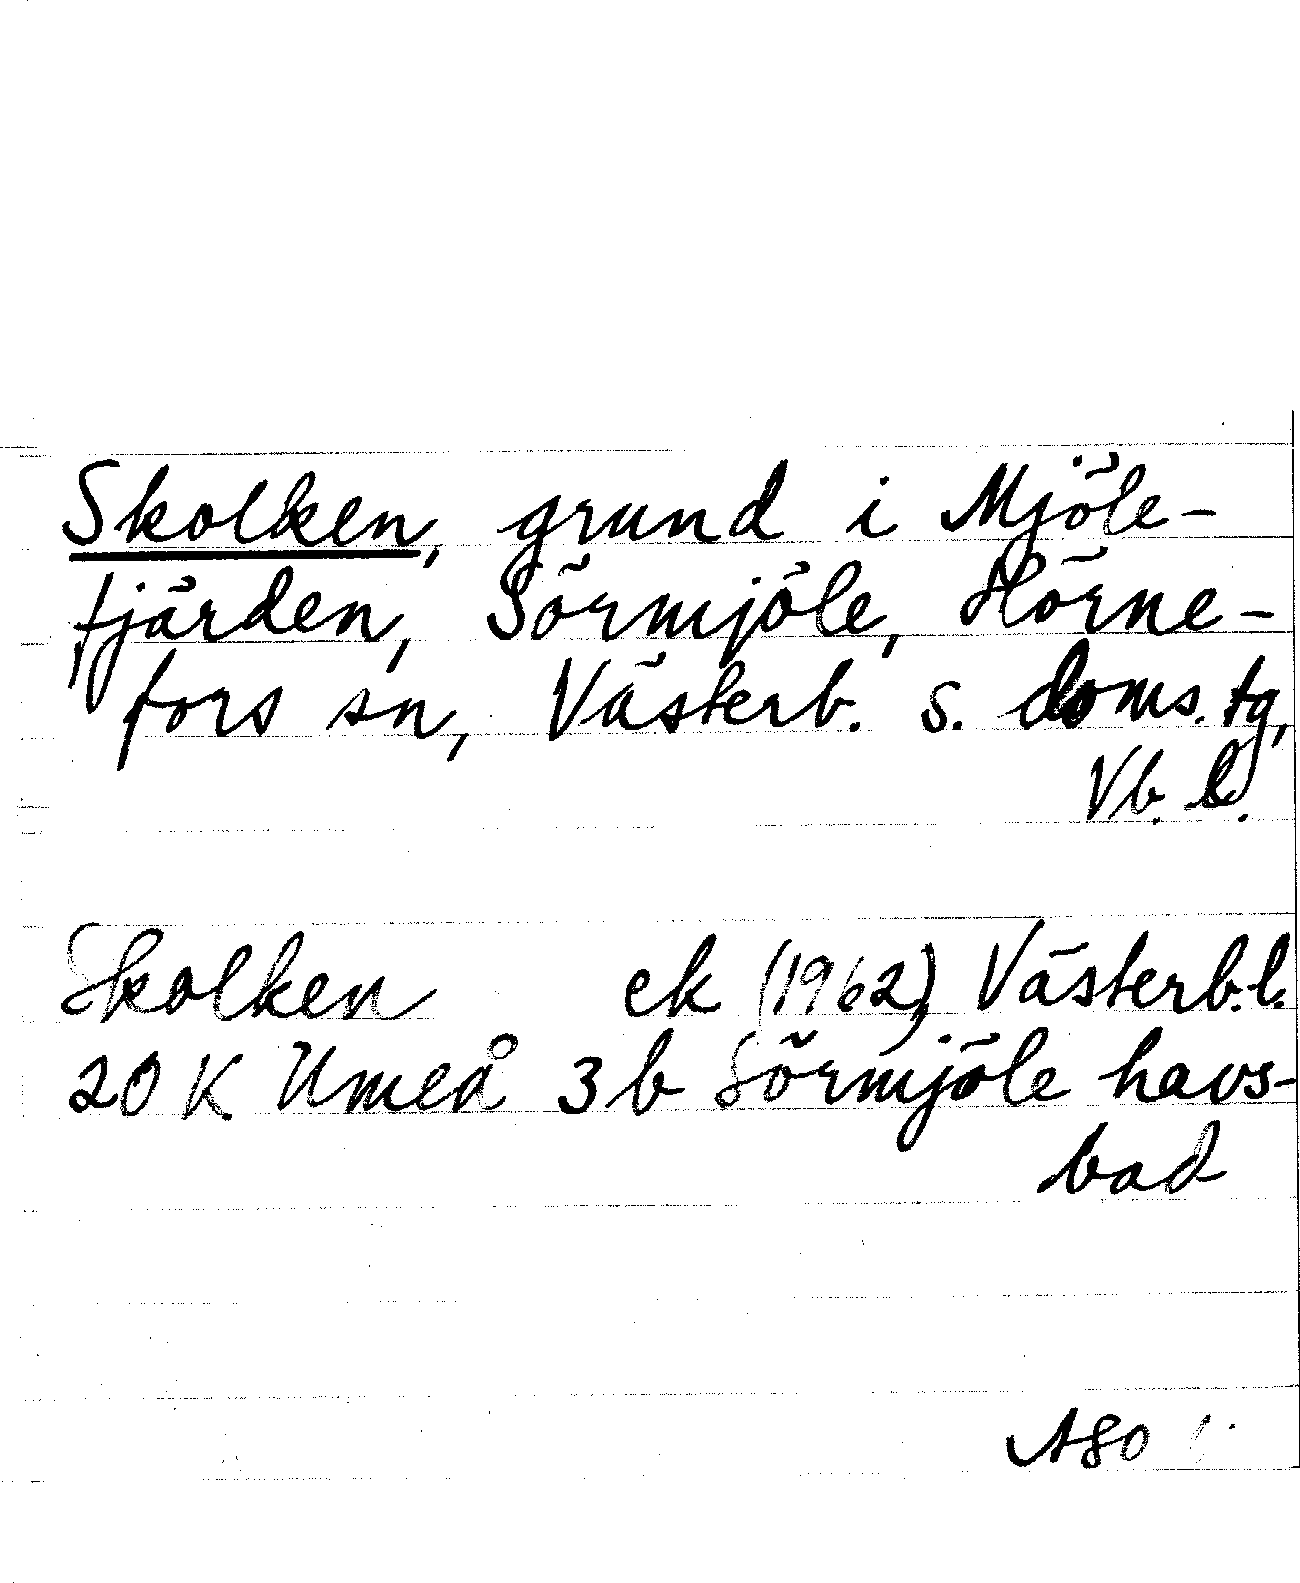 Skolken, grund i Mjöle-
fjärden, Sörmjöle, Hörne-
fors sn, Västerb. s. doms. tg,
Vb. l.
Skolken ek (1962) Västerb. l.
20 K Umeå 3 b Sörmjöle havs-
bad